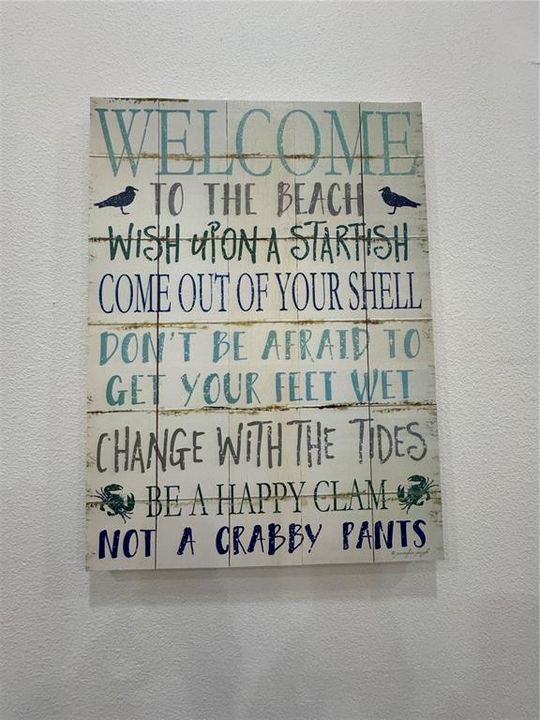 WELCOME
TO THE BEACH
WISH UPON A STARFISH
COME OUT OF YOUR SHELL
DON'T BE AFRAID TO
GET YOUR FEET WET
CHANGE WITH THE TIDES
BE A HAPPY CLAM
NOT A CRABBY PANTS